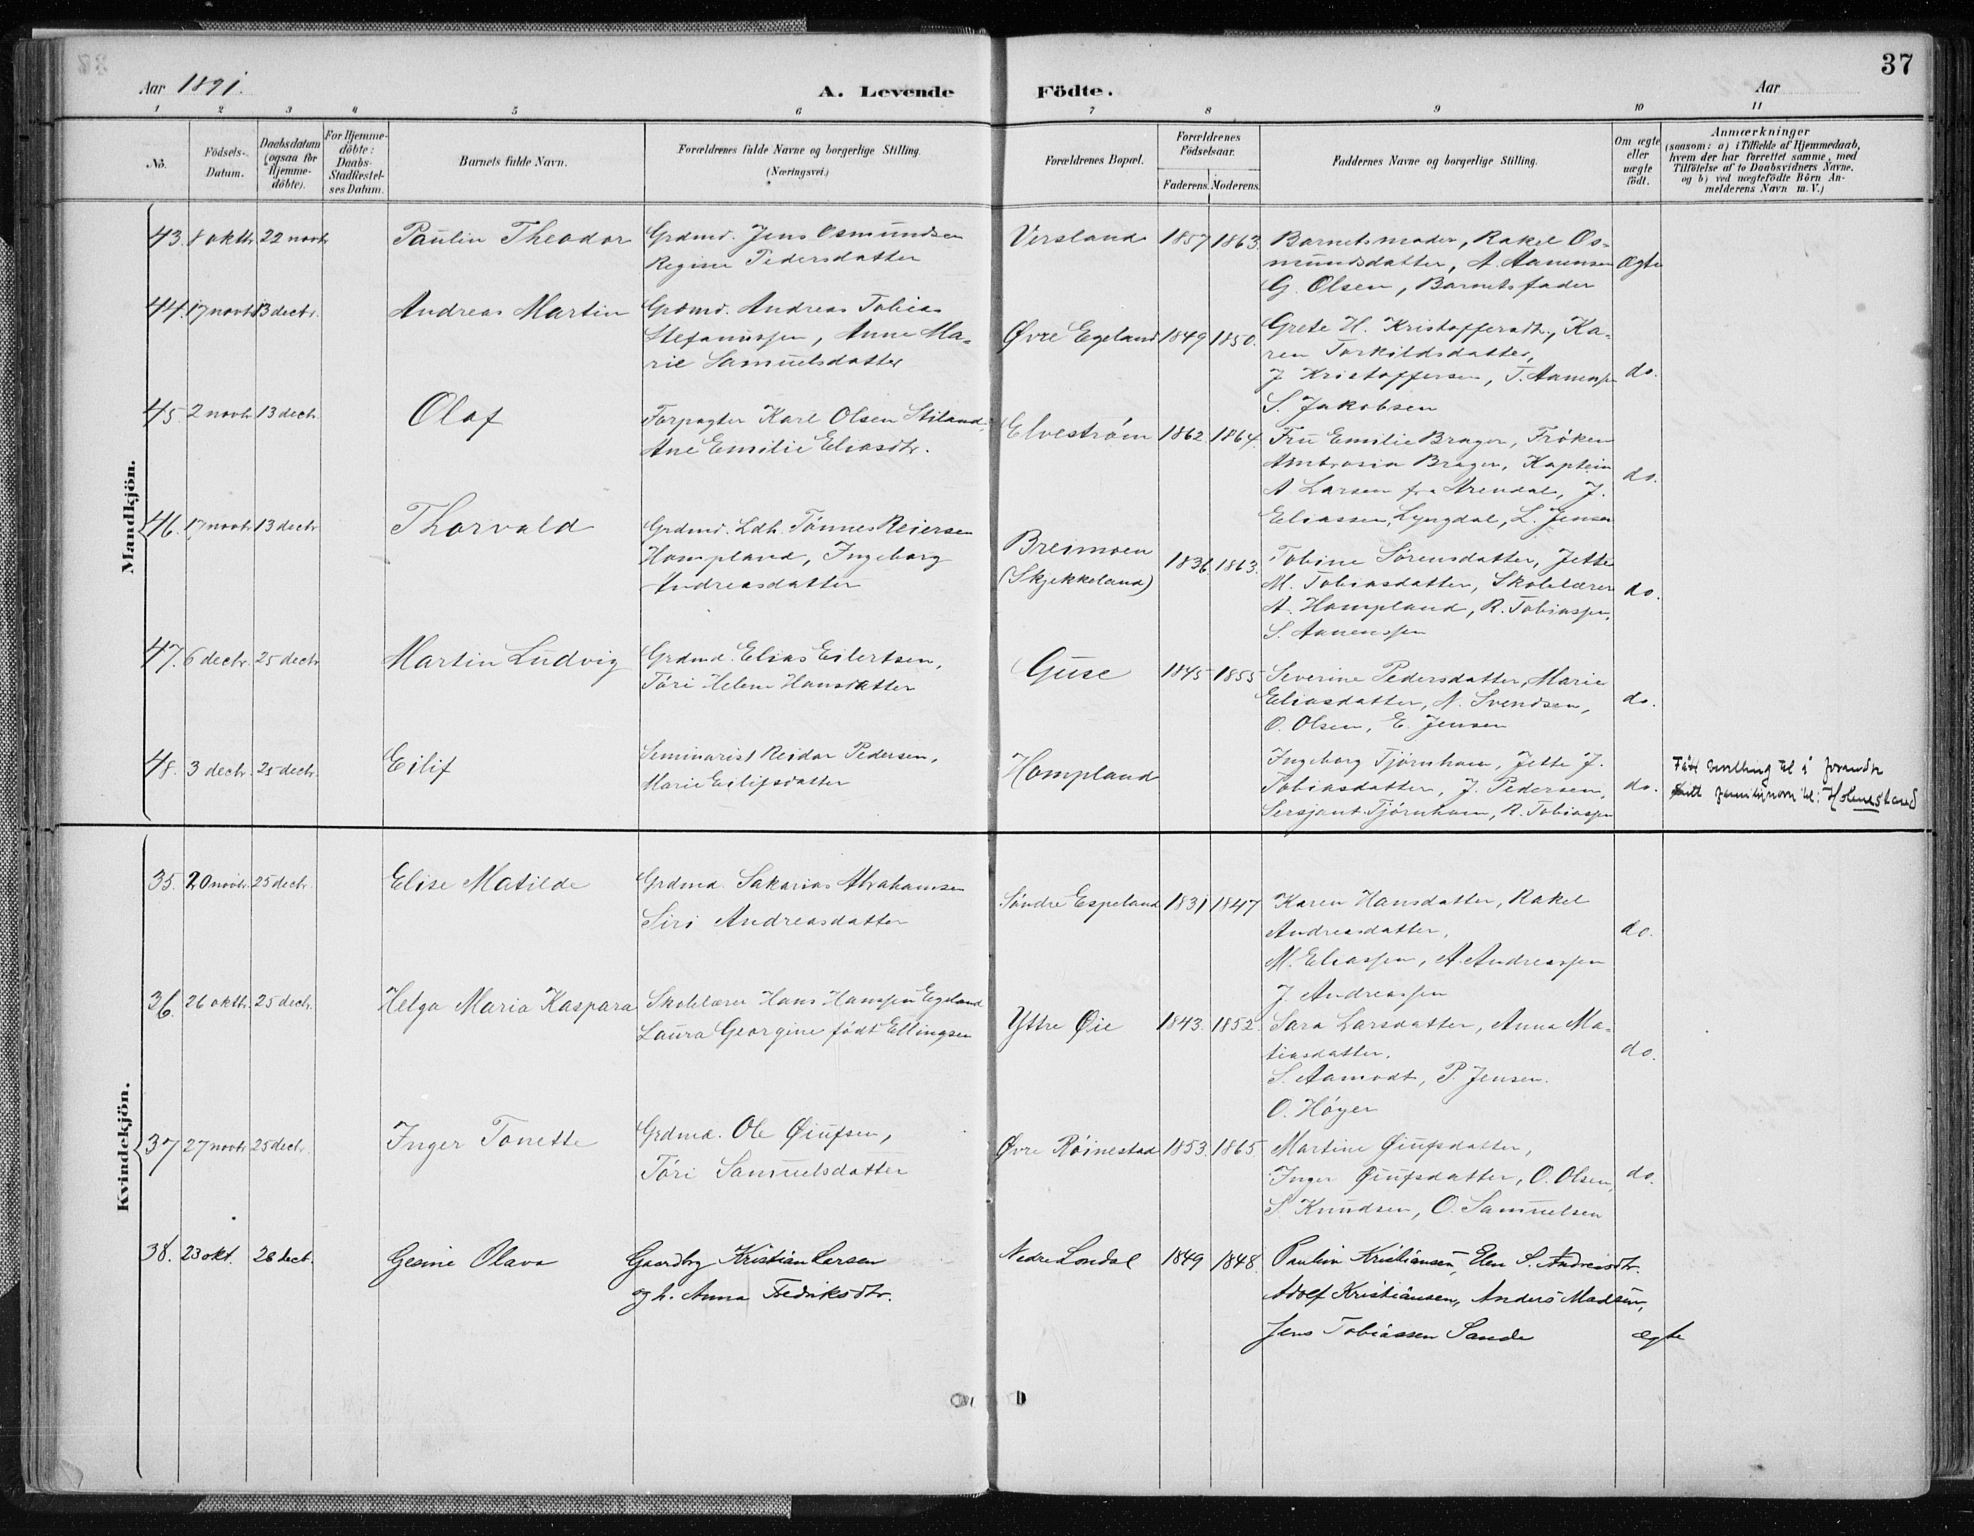 37
Aar 1891.
A. Levende Födte.
Aar
1 2 3 4 5 6 7 8 9 10 11
Nö.
Födsels-Datum.
Daabsdatum (ogsaa for Hjemmedöbte).
For Hjemmedöbte: Daabs-Stadfestelses Datum.
Barnets fulde Navn.
Forældrenes fulde Navne og borgerlige Stilling. (Næringsvei.)
Forældrenes Bopæl.
Forældrenes Födselsaar.
Faderens. Moderens.
Faddernes Navne og borgerlige Stilling.
Om ægte eller uægte födt.
Anmærkninger
(saasom: a) i Tilfælde af Hjemmedaab,
hvem der har forrettet samme, med
Tilföielse af to Daabsvidners Navne,
og b) ved uægtefödte Börn An-
melderens Navn m. V.)
Mandkjön.
43. 8 oktb. 22 novb. Paulin Theodor
Grdmd. Jens Osmundsen
Regine Pedersdatter
Versland 1857 1863.
Barnets moder, Rakel Os-
mundsdatter, A. Aanensen
G. Olsen, Barnets fader
Ægte
44. 17 novb. 13 decbr. Andreas Martin
Grdmd. Andreas Tobias
Stefanussen, Anne Ma-
rie Samuelsdatter
Øvre Egeland 1849 1850.
Grete H. Kristoffersdtr., Ka-
ren Torkildsdatter,
J Kristoffersen, T. Aanensen
S. Jakobsen
do.
45. 2 novb. 13 decbr. Olaf
Forpagter Karl Olsen Stiland,
Ane Emilie Eliasdtr.
Elvestrøm 1862. 1864.
Fru Emilie Brager, Frøken
Ambrosia Brager, Kaptein
A Larsen fra Arendal, J.
Eliassen, Lyngdal, L. Jensen
do.
46. 17 novb. 13 decbr Thorvald
Grdmd. Ldh. Tönnes Reiersen
Hompland, Ingeborg
Andreasdatter
Breimoen
(Skjekkeland)
1836 1863.
Tobine Sørensdatter, Jette
M. Tobiasdatter, Skolelærer
A. Hompland, R. Tobiassen,
S. Aanenssen
do.
47. 6 decbr. 25 decbr Martin Ludvig
Grdmd. Elias Eilertsen,
Töri Helene Hansdatter
Guse 1845 1855
Severine Pedersdatter, Marie
Eliasdatter, N. Svendsen,
O. Olsen, E. Jensen
do.
48. 3 decbr. 25 decbr. Eilif
Seminarist Reidar Pedersen,
Marie Eilifsdatter
Hompland
Ingeborg Tjørnhom, Jette J.
Tobiasdatter, J. Pedersen,
Sersjant Tjørnhom, R. Tobiassen
do.
Fått bevilling til å forandre
sitt familienavn til: Holmesland
Kvindekjön.
35. 20 novb. 25 decbr. Elise Matilde
Grdmd. Sakarias Abrahamsen
Siri Andreasdatter
Söndre Espeland 1831 1847
Karen Hansdatter, Rakel
Andreasdatter,
M. Eliassen, A. Andreassen
J. Andreassen
do.
36. 26 oktb. 25 decbr. Helga Maria Kaspara
Skolelærer Hans Hanssen Egeland
Laura Georgine født Ellingsen
Yttre Øie 1843. 1852.
Sara Larsdatter, Anna Ma-
tiasdatter.
S. Aamodt, P. Jensen.
O. Høyer
do.
37 27 novb. 25 decbr. Inger Tonette
Grdmd. Ole Øiufsen,
Töri Samuelsdatter
Øvre Röinestad 1853. 1865.
Martine Øiufsdatter,
Inger Øiufsdatter, O. Olsen,
S. Knudsen, O. Samuelsen
do.
38. 23 okt. 26 decb. Gesine Olava
Gaardbr Kristian Larsen
og h. Anna Fredriksdtr.
Nedre Londal 1849 1848.
Paulin Kristiansen, Elen S. Andreasdtr.
Adolf Kristiansen, Anders Madsen,
Jens Tobiassen Sande
ægte